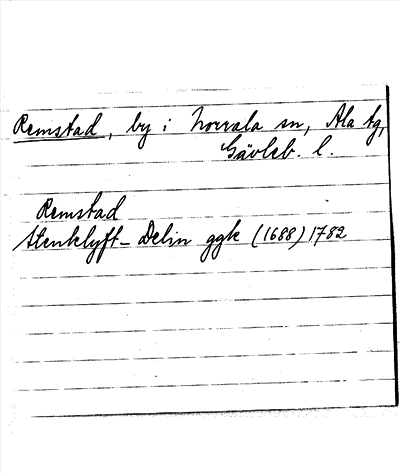 Remstad, by i Norrala sn, Ala tg,
Gävleb. l.
Remstad
Stenklyft – Delin ggk (1688) 1782